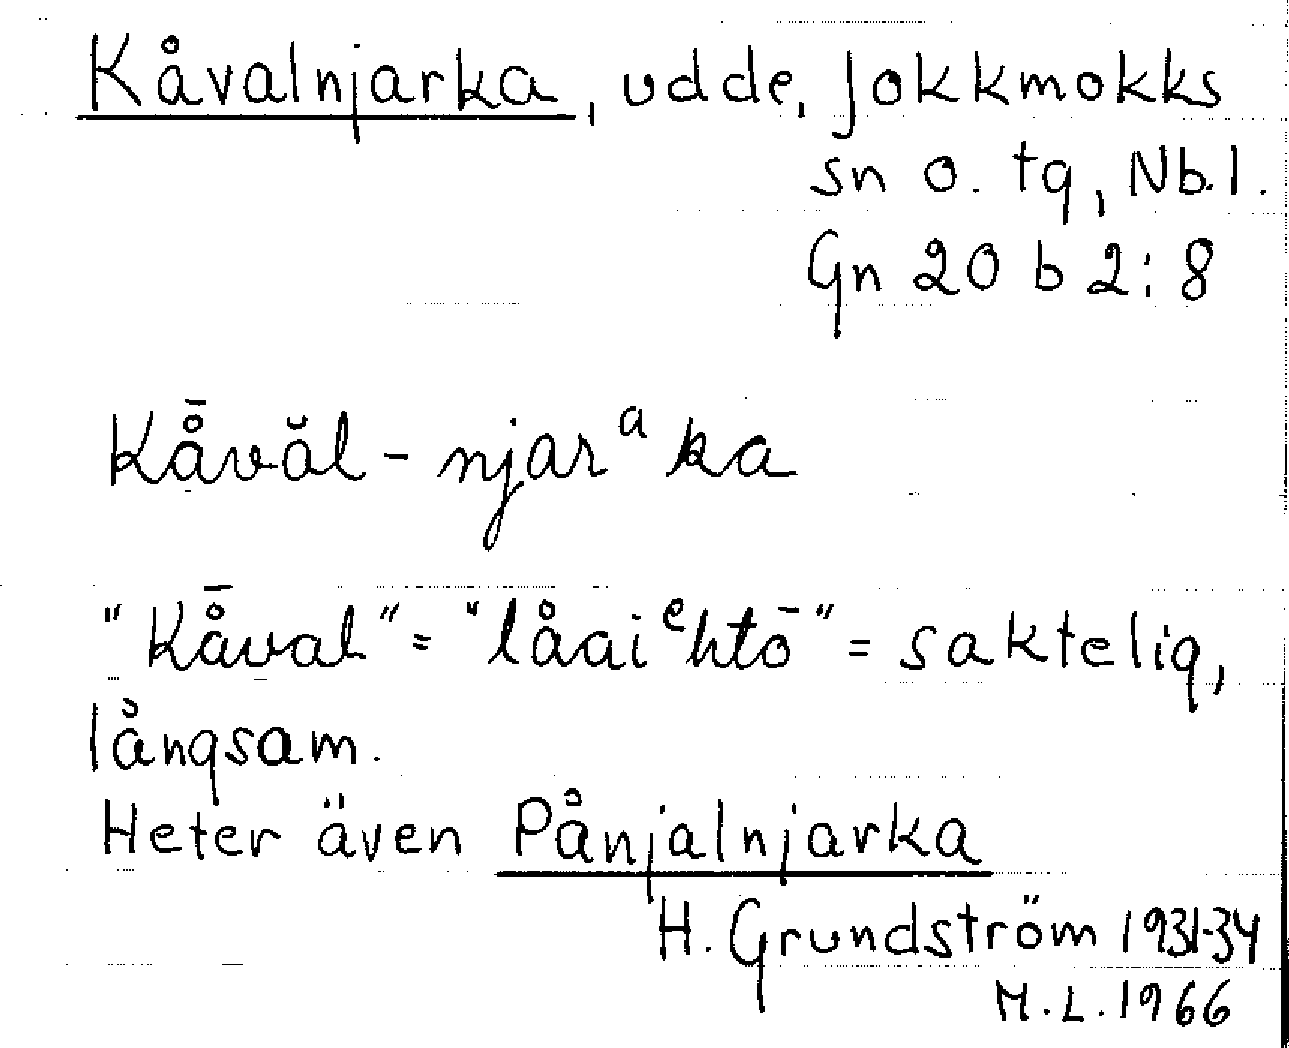 Kåvalnjarka, udde, Jokkmokks
sn o. tg, Nb.l.
Gn 20 b 2:8
Kå̄văl-njarᵃka
"Kå̄val" = "låaiᵉhtō" = saktelig,
långsam.
Heter även Pånjalnjarka
H. Grundström 1931-34
M.L. 1966